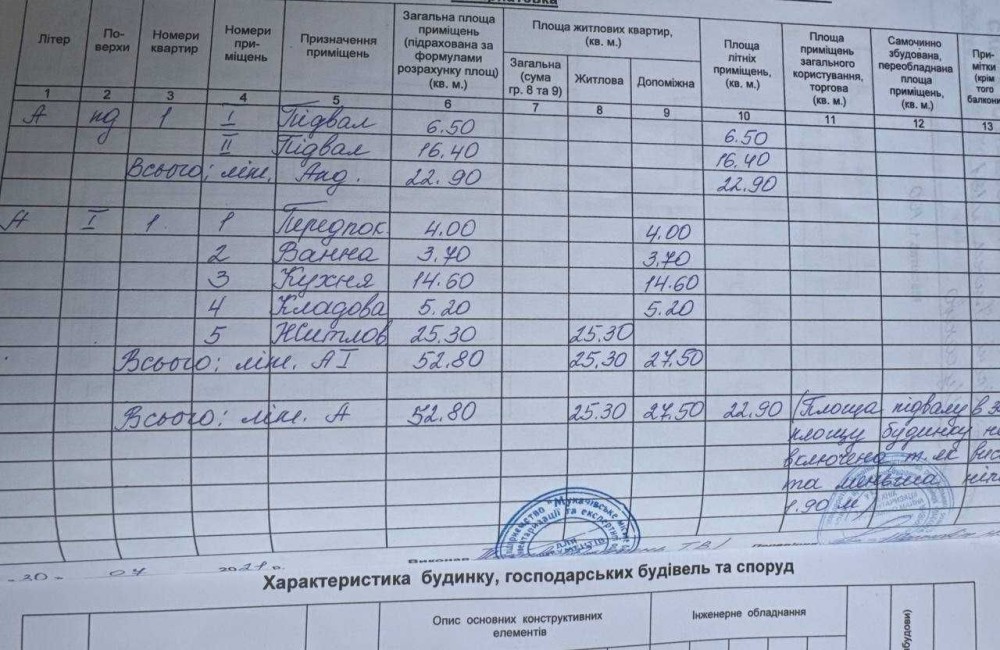 Літер
По-
верхи
Номери
квартир
Номери
при-
міщень
Призначення
приміщень
Загальна площа
приміщень
(підрахована за
формулами
розрахунку площ)
(кв. м.)
Площа житлових квартир,
(кв. м.)
Загальна
(сума
гр. 8 та 9)
Житлова
Допоміжна
Площа
літніх
приміщень,
(кв. м.)
Площа
приміщень
загального
користування,
торгова
(кв. м.)
Самочинно
збудована,
переобладнана
площа
приміщень,
(кв. м.)
При-
мітки
(крім
того
балкони
1 2 3 4 5 6 7 8 9 10 11 12 13
А пд 1 I Підвал 6.50 6.50
II Підвал 16.40 16.40
Всього: літ. Апд. 22.90 22.90
А I 1 1 Передпок. 4.00 4.00
2 Ванна 3.70 3.70
3 Кухня 14.60 14.60
4 Кладова 5.20 5.20
5 Житлов 25.30 25.30
Всього: літ. А I 52.80 25.30 27.50
Всього: літ. А 52.80 25.30 27.50 22.90 (Площа підвалу в
площу будинку не
включена т.як вис
та меньша ніж
1.90 м)
20 04 2021 р.
Виконав
Характеристика будинку, господарських будівель та споруд
Опис основних конструктивних
елементів
Інженерне обладнання